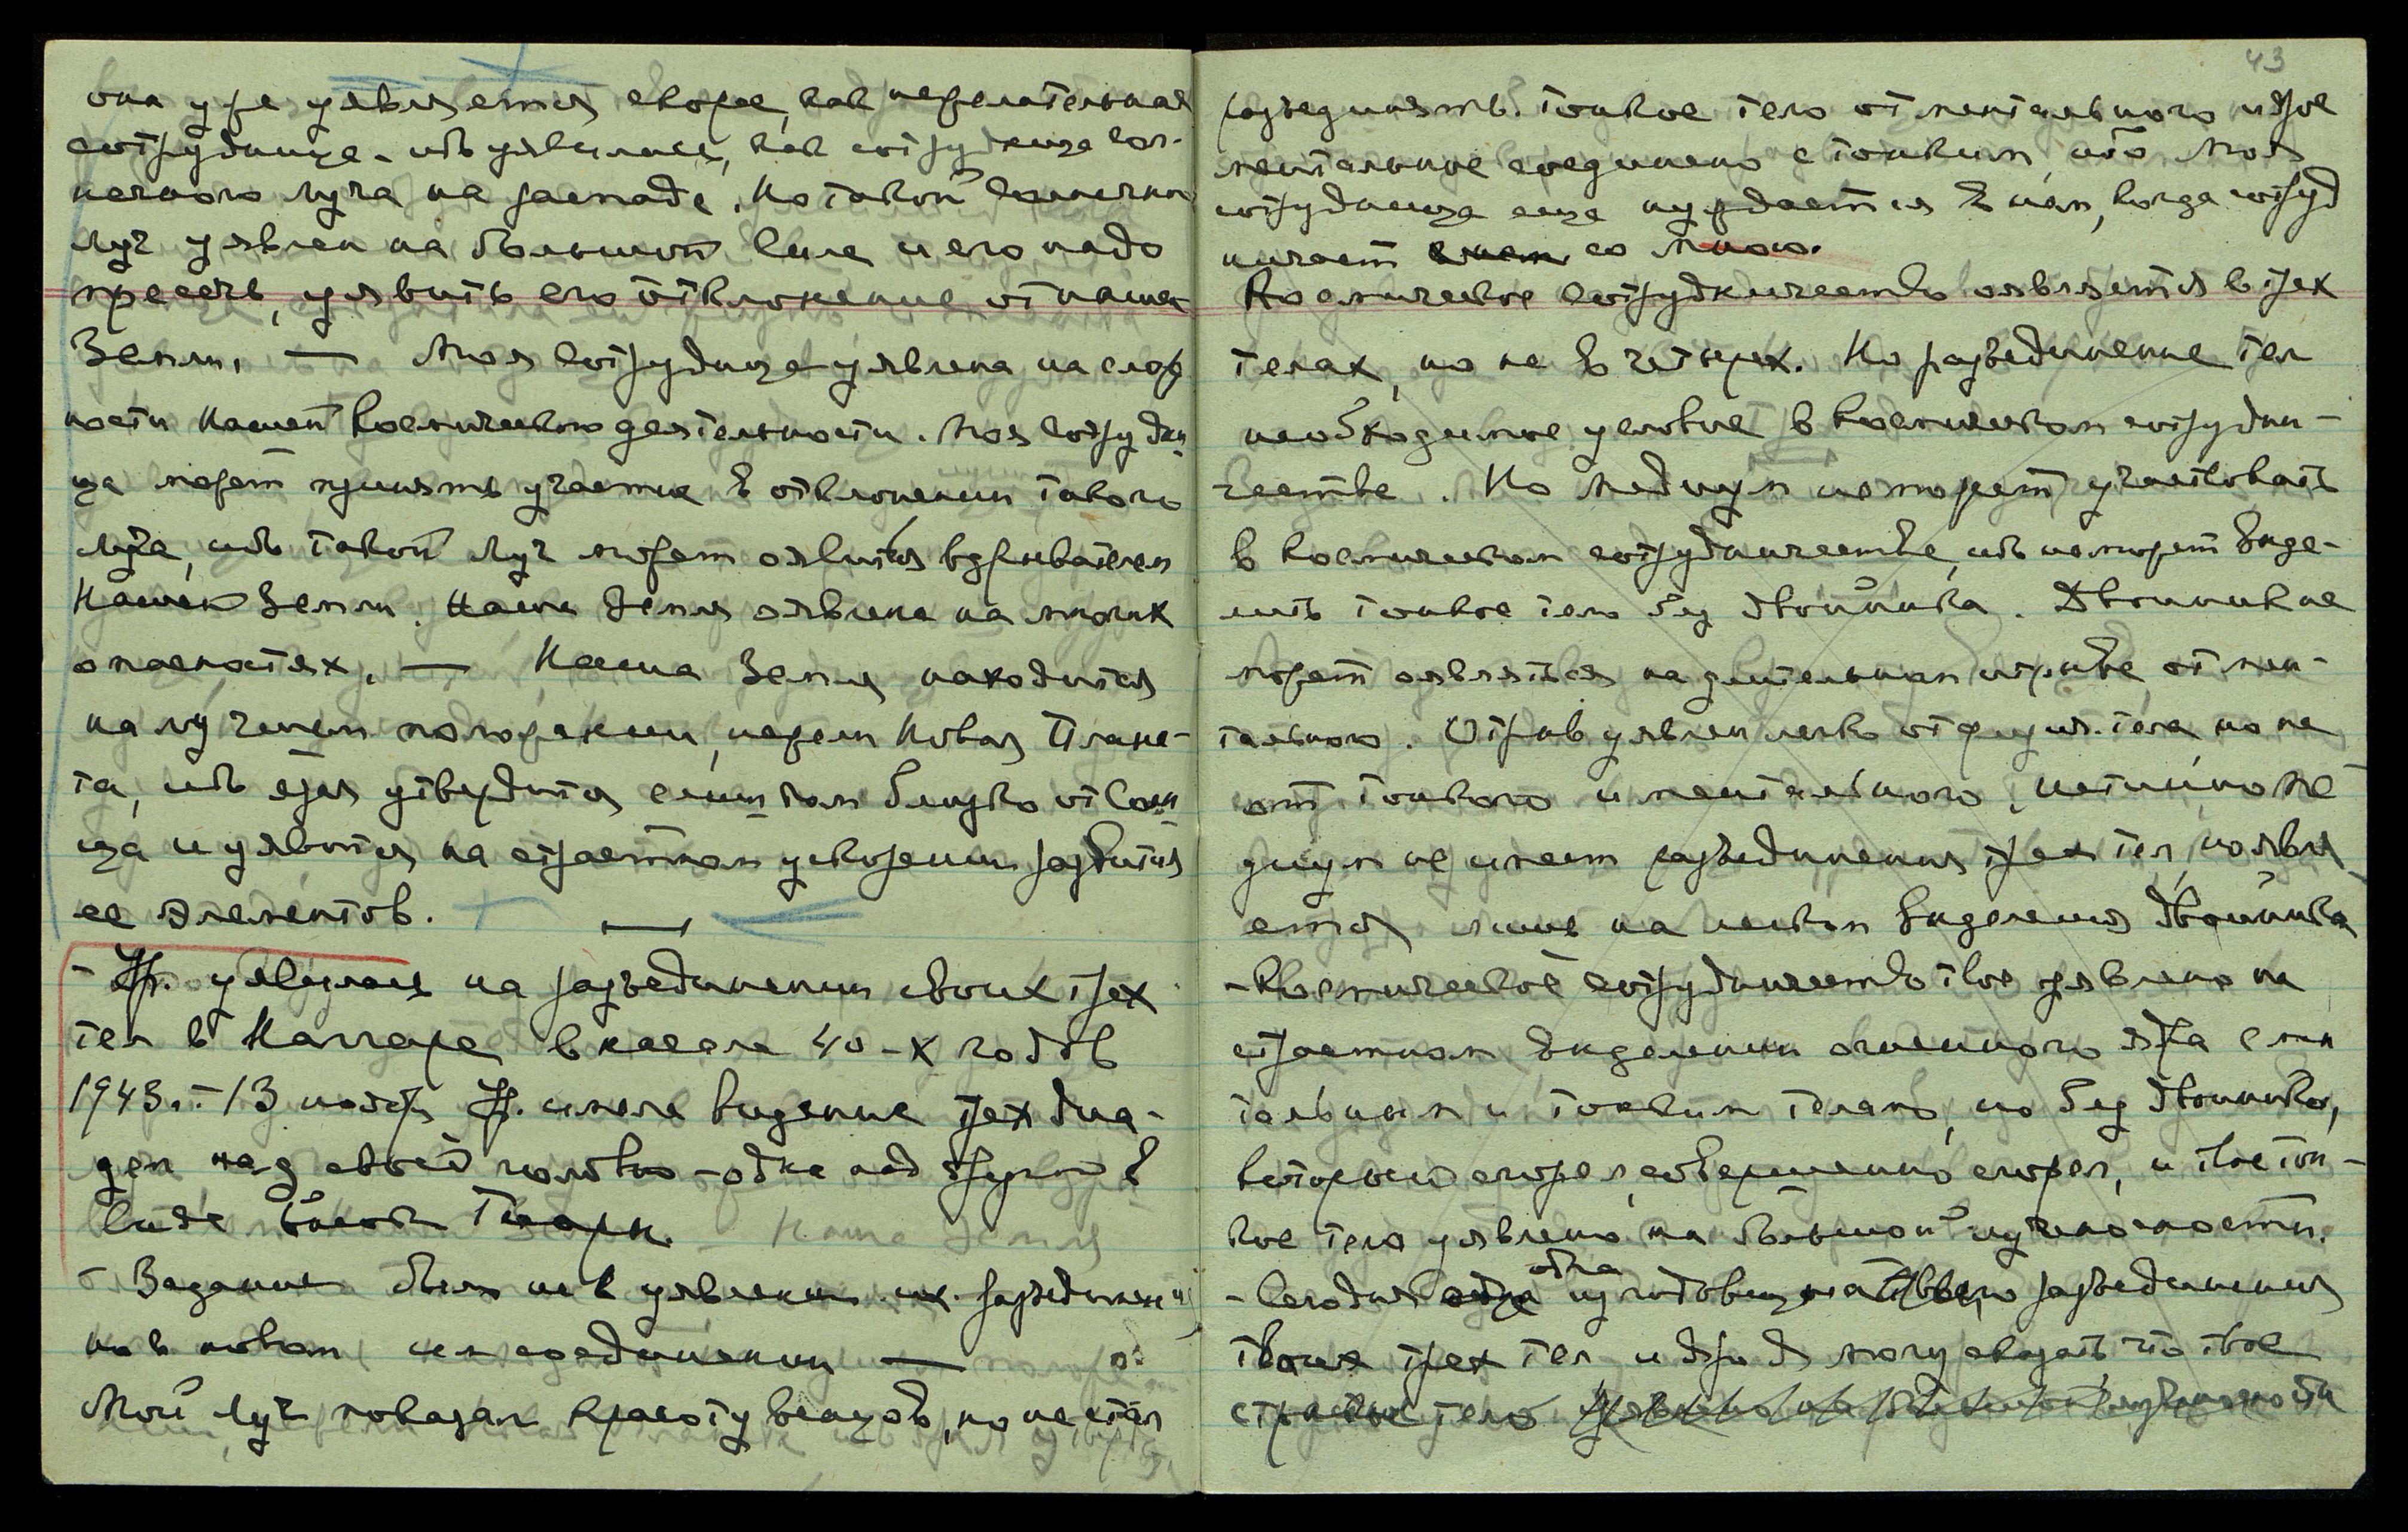 она уже уявляется скорее, как нежелательная
сотрудница, ибо уявилась, как сотрудница сол-
нечного луча на западе. Но такой солнечный
луч уявлен на большой силе и его надо
пресечь, уявить его отклонение от нашей
Земли. — Моя сотрудница уявлена на слож
ности Нашей космической деятельности. Моя сотрудни-
ца может принять участие в отклонении такого
луча, ибо такой луч может оявиться взрывателем
Нашей Земли. Наша Земля оявлена на многих
опасностях. — Наша Земля находится
на лучшем положении, нежели Новая Плане-
та, ибо утвердится слишком близко от Солн-
ца и уявится на страстном ускорении развития
ее элементов.
- Ур. уявилась на разъединении своих трех
тел в Наггаре, в начале 40-х годов
1943 г. 13 ноября Ур. имела видение трех диа-
дем над своей головою - одна над другою в
виде высокой Тиары.
- Задание было не в уявлении их разъединения
но в новом их соединении —
Мой луч показал красоту венцов, но не стал
43
разъединять тонкое тело от ментального и твое
ментальное соединено с тонким, ибо Моя
сотрудница еще нуждается в нем, когда сотруд
ничает со Мною.
Космическое сотрудничество оявляется в трех
телах, но не в четырех. Но разъединение тел
необходимое условие в космическом сотрудни-
честве. Но медиум не может участвовать
в космическом сотрудничестве, ибо не может выде-
лить тонкое тело без двойника. Двойник не
может оявляться на длительном отрыве от мен-
тального. Отрыв уявлен легко от физич. тела, но не
от тонкого и ментального. Истинно ме-
диум не имеет разъединения трех тел, но явля
ется лишь на выделения двойника
- Космическое сотрудничество твое уявлено на
страстном выделении огненного ядра с мен
тальным и тонким телами, но без двойника,
который сгорел, совершенно сгорел, и твое тон-
кое тело уявлено на большой изученности.
- Сегодня одна из годовщин твоего разъединения
твоих трех тел и могу сказать что твое
тело уявлено на большой